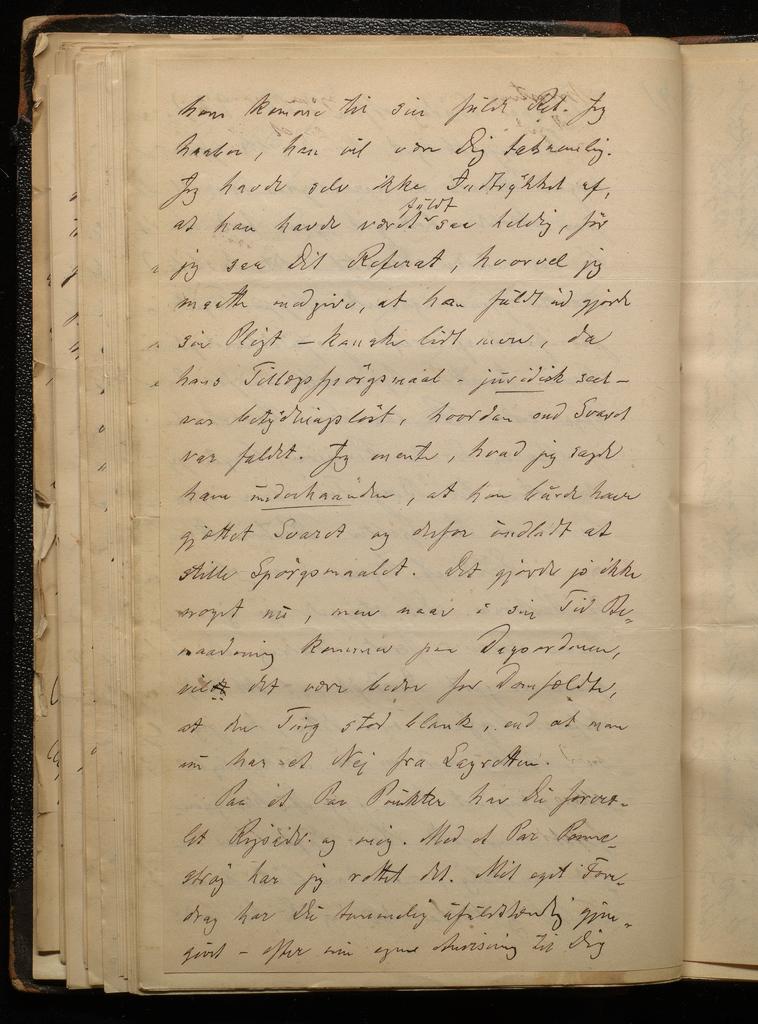 ham komme til sin fulde Ret. Jeg
haaber, han vil være Dig taknemlig.
Jeg havde selv ikke Indtrykket af,
at han havde været fuldt saa heldig, før
jeg saa Dit Referat, hvorvel jeg
maatte medgive, at han fuldt ud gjorde
sin Pligt – kanske lidt mere, da
hans Tillægsspørgsmaal – juridisk seet –
var betydningsløst, hvordan end Svaret
var faldet. Jeg mente, hvad jeg sagde
ham underhaanden, at han burde have
gjættet Svaret og derfor undladt at
stille Spørgsmaalet. Det gjorde jo ikke
noget nu, men naar i sin Tid Be-
naadning kommer paa Dagsordenen,
vilde det være bedre for Domfældte,
at den Ting stod blank, end at man
nu har et Nej fra Lagretten.
Paa et Par Punkter har Du forvex-
let og mig. Med et Par Penne-
strøg har jeg rettet det. Mit eget Fore-
drag har Du temmelig ufuldstændig gjen-
givet – efter min egen Anvisning til Dig